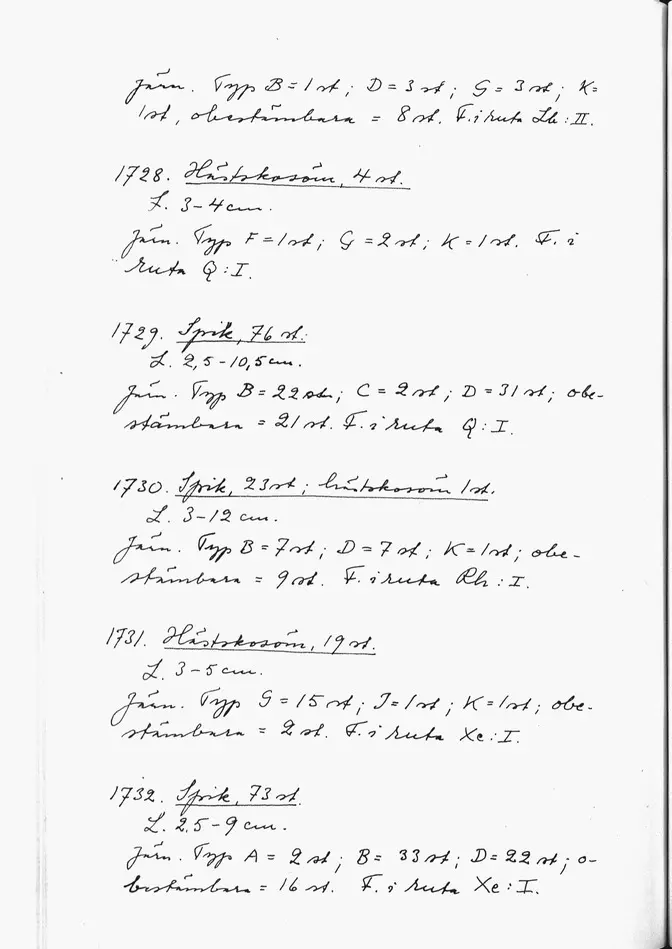 Järn. Typ B = 1 st; D = 3 st; G = 3 st; K =
1 st, obestämbara = 8 st. F. i ruta Lh : II.
1728. Hästskosöm, 4 st.
L. 3-4 cm.
Järn. Typ F = 1 st; G = 2 st; K = 1 st. F. i
ruta Q : I.
1729. Spik, 76 st.
L. 2,5-10,5 cm.
Järn. Typ B = 22 st; C = 2 st; D = 31 st; obe-
stämbara = 21 st. F. i ruta Q : I.
1730. Spik, 23 st; hästskosöm 1 st.
L. 3-12 cm.
Järn. Typ B = 7 st; D = 7 st; K = 1 st; obe-
stämbara = 9 st. F. i ruta Rh : I.
1731. Hästskosöm, 19 st.
L. 3-5 cm.
Järn. Typ G = 15 st; J = 1 st; K = 1 st; obe-
stämbara = 2 st. F. i ruta Xe : I.
1732. Spik, 73 st.
L. 2,5-9 cm.
Järn. Typ A = 2 st; B = 33 st; D = 22 st; o-
bestämbara = 16 st. F. i ruta Xe : I.